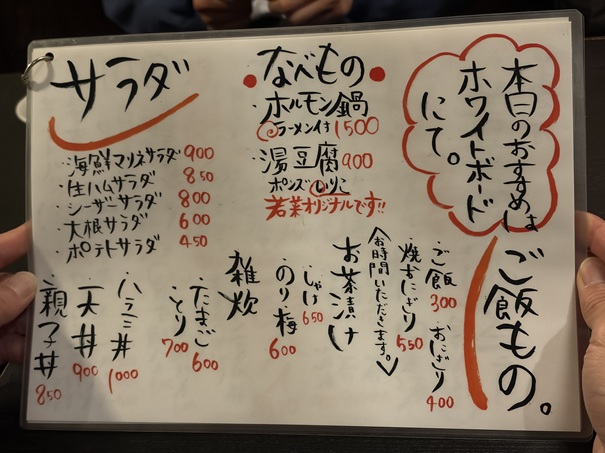 本日のおすすめは
ホワイトボード
にて。
なべもの
ホルモン鍋
ラーメン付 1500
湯豆腐 900
ポンズ
若菜オリジナルです!!
サラダ
海鮮マリネサラダ 900
生ハムサラダ 850
シーザーサラダ 800
大根サラダ 600
ポテトサラダ 450
ご飯もの。
ご飯 300
おにぎり 400
焼おにぎり 550
(お時間いただきます。)
お茶漬け
しゃけ 650
のり梅 600
雑炊
たまご 600
とり 700
ハラミ丼 1000
天丼 900
親子丼 850